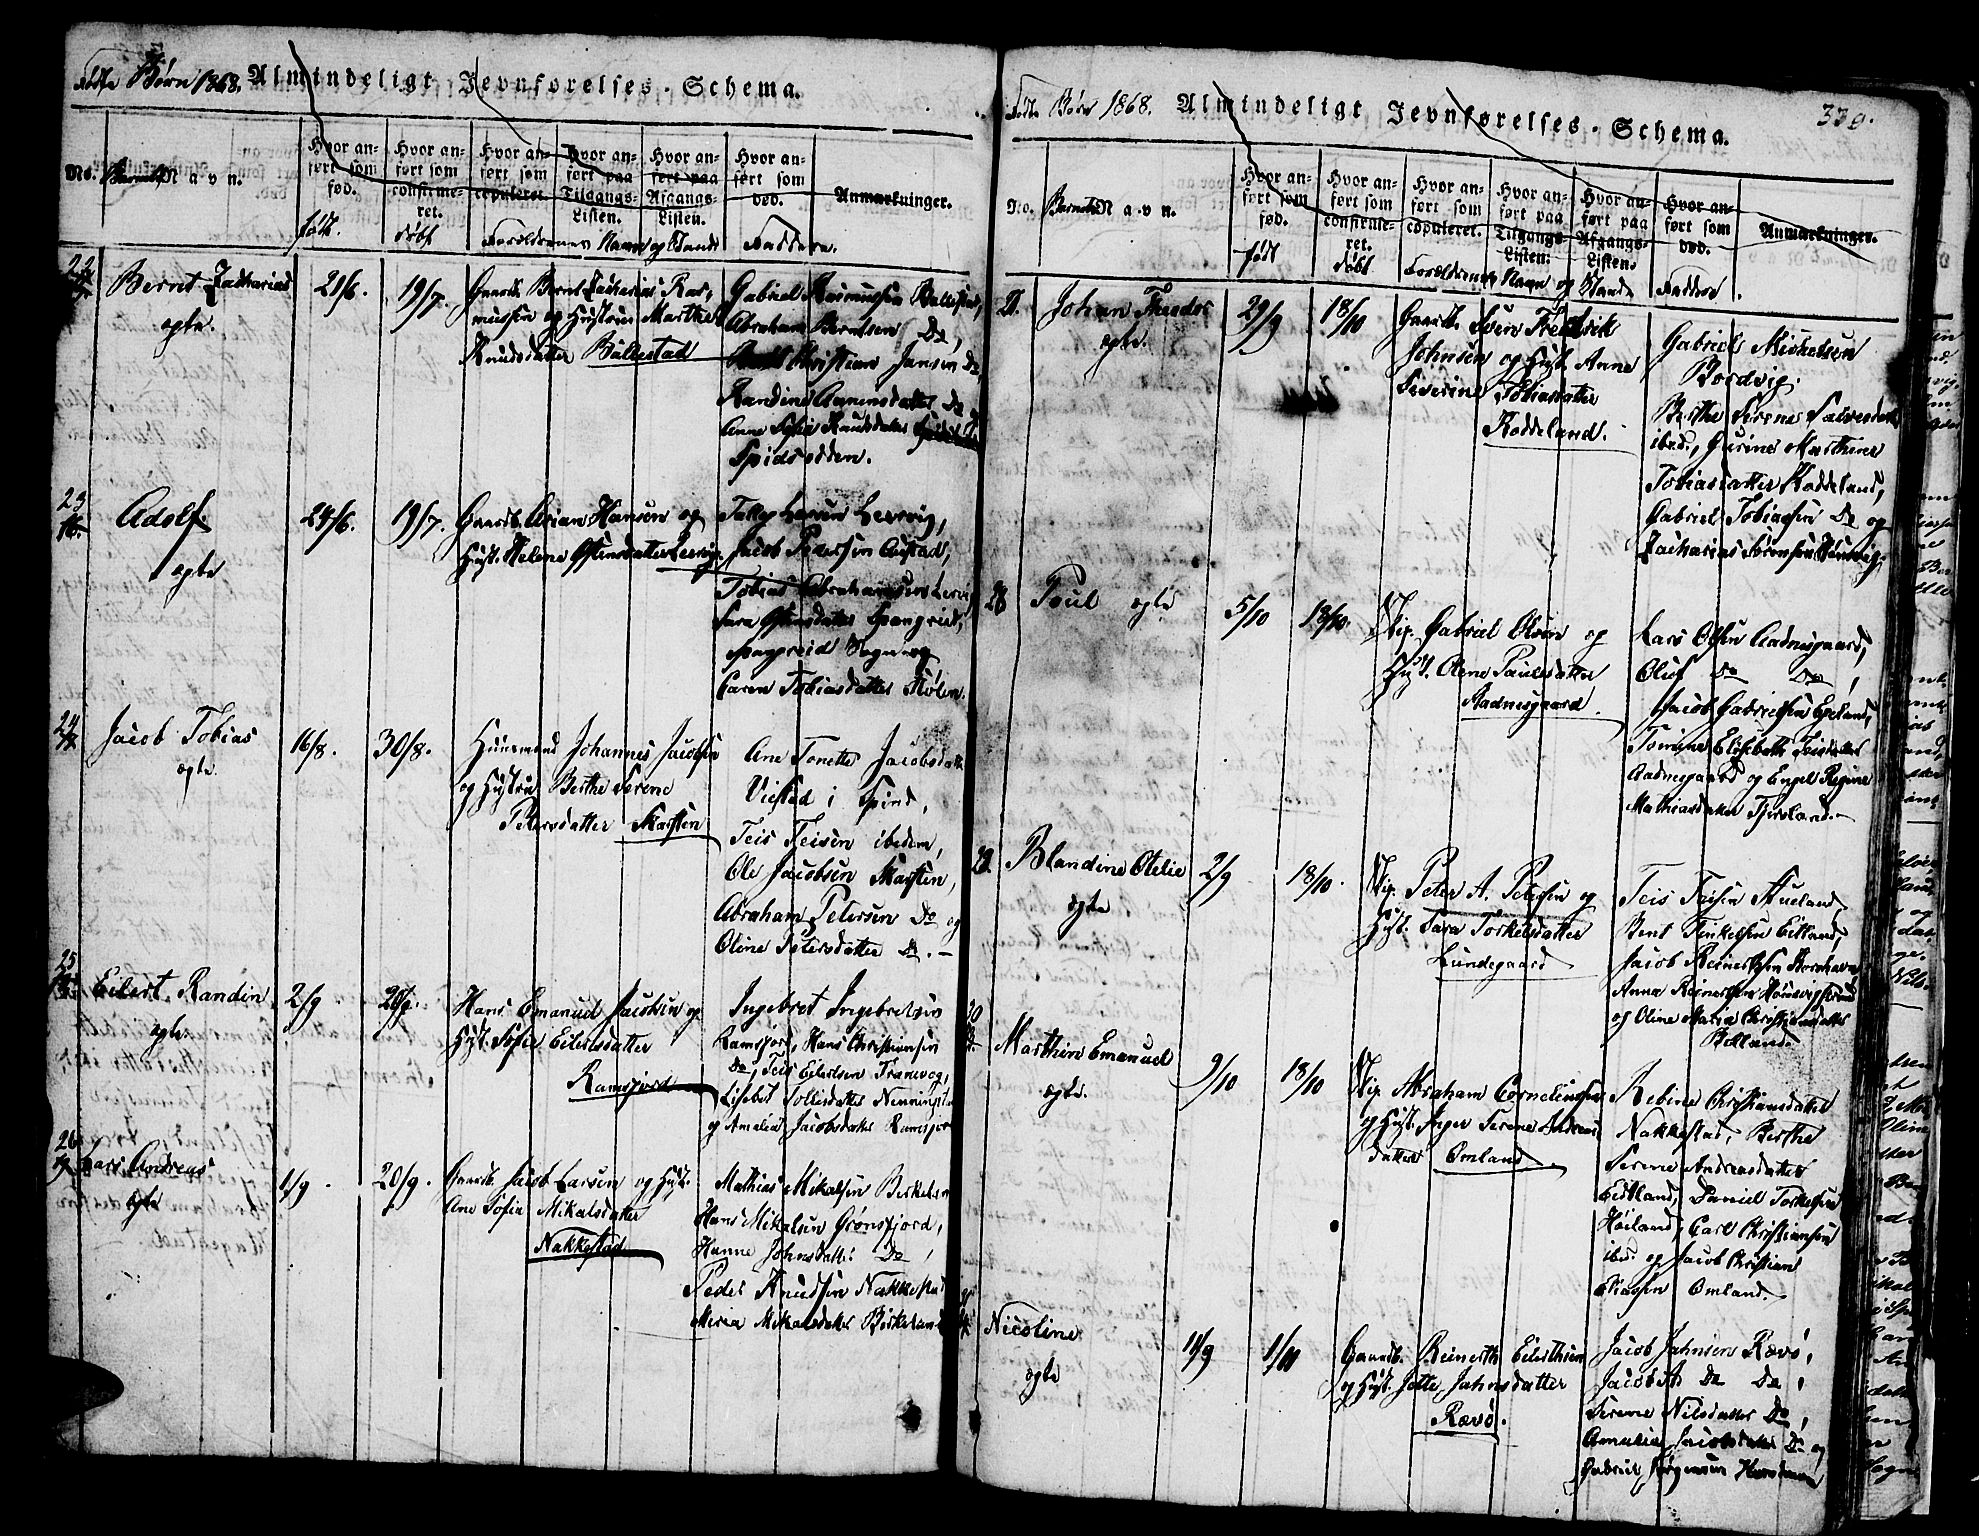 Fødte Børn 1868. Almindeligt Jevnførelses-Schema.
No. Barnets Navn.
Hvor anført som fød. født.
Hvor anført som confirmeret. døbt
Hvor anført som copuleret.
Hvor anført paa Tilgangs-Listen.
Hvor anført paa Afgangs-Listen.
Forældrenes Navn og Stand
Hvor anført som død. Faddere.
Anmærkninger.
22
Bernt Zacharias
ægte.
21/6.
19/7.
Gaardb. Bernt Zacharias Ras-
mussen og Hustru Marthe
Knudsdatter Ballestad
Gabriel Rasmussen Ballestad,
Abraham Berntsen Do,
Christian Jansen Do,
Randine Aanensdatter Do og
Anne Sofie Knudsdatter
Spidsodden.
23
Adolf
ægte
24/6.
19/7.
Gaardb. Arian Hansen og
Hust. Helene Ostensdatter Lervig.
Lervig,
Jacob Pedersen Austad,
Tobias Abrahamsen Lervig
Sara Ostensdatter Spangreid,
Spangreid Sogn og
Caren Tobiasdatter Stølen.
24
Jacob Tobias
ægte.
16/8.
30/8.
Huusmand Johannes Jacobsen
og Hustru Berthe Serene
Petersdatter Skarsten
Ane Tonette Jacobsdatt.
Viestad i Spind,
Teis Teisen ibidem,
Ole Jacobsen Skarsten,
Abraham Petersen Do og
Oline Petersdatter Do. —
25
Eilert Randin
ægte.
2/9
20/9.
Hans Emanuel Jacobsen og
Hust. Sofie Eilertsdatter
Ramsfjord
Ingebret Ingebretsen
Ramsfjord, Hans Christiansen
Do, Teis Eilertsen Tranevog,
Lisebet Tollisdatter
og Amalia Jacobsdatter Ramsfjord
26
Lars Andreas
ægte
1/9.
20/9.
Gaardb. Jacob Larsen og Hust.
Ane Sofie Mikalsdatter
Nakkestad
Mathias Mikalsen Birkeland
Hans Mikalsen Grønsfjord,
Hanne Johnsdatt: Do,
Peder Knudsen Nakkestad
Maria Mikalsdatter Birkeland
Fødte Børn 1868. Almindeligt Jevnførelses-Schema.
330.
No. Barnets Navn.
Hvor anført som fød. født
Hvor anført som confirmeret. døbt.
Hvor anført som copuleret.
Hvor anført paa Tilgangs-Listen.
Hvor anført paa Afgangs-Listen.
Forældrenes Navn og Stand
Hvor anført som død. Faddere.
Anmærkninger.
27.
Johan Theodor
ægte.
29/9
18/10
Gaardb. Sven Fredrik
Johnsen og Hust. Anne
Severine Tobiasdatter
Roddeland.
Gabriel Mickelsen
Bordvig,
Berthe Serene Salvesdatter
ibid., Gurine Marthine
Tobiasdatter Roddeland,
Gabriel Tobiassen Do og
Zacharias Sørensen
28
Poul ægte
5/10
18/10.
Skip. Gabriel Olsen og
Hust. Olene Paulsdatter
Aadnesgaard.
Lars Olsen Aadnesgaard,
Oluf Do Do,
Jacob Gabrielsen Egeland,
Tomine Elisabeth Teisdatter
Aadnesgaard og Engel Regine
Mathiasdatter Tjersland. —
29.
Blandine Otelie
ægte
2/9
18/10.
Skip. Peter A. Petersen og
Hust. Sara Torkelsdatter
Lundegaard
Teis Teisen Stueland,
Bent Eitland,
Jacob Reinertsen Kornhavn
Anna Reinertsen
og Oline Maria Christiansdatter
30
Marthin Emanuel
ægte.
9/10
18/10
Skip. Abraham Corneliussen
og Hust. Inger Serene Andreas-
datter Omland
Rebine Christiansdatter
Nakkestad, Berthe
Serene Andreasdatter
Eidtland, Daniel Torkelsen
Høiland, Carl Christiansen
ibid. og Jacob Christian
Eliassen Omland.
Nicoline
ægte
11/9
1/10
Gaardb. Reinerth Eilerthsen
og Hust. Jette Jahnsdatter
Rævø.
Jacob Jahnsen Rævø,
Jacob A Do Do,
Serene Nilsdatter Do,
Amalia Jacobsdatter Do og
Gabriel Jørgensen